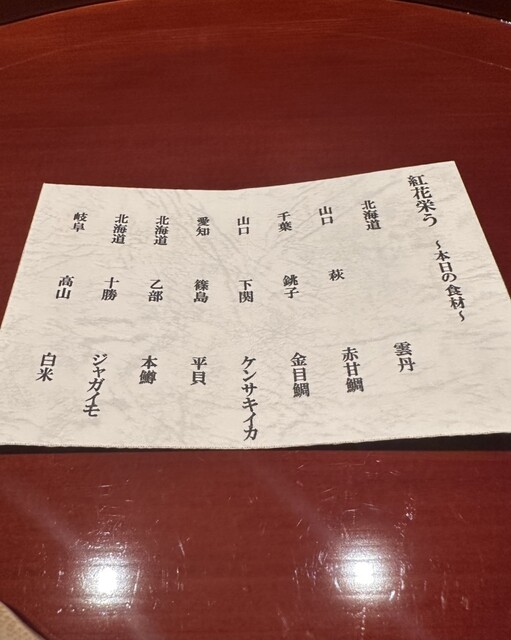 紅花栄う ～本日の食材～
北海道 雲丹
山口 萩 赤甘鯛
千葉 銚子 金目鯛
山口 下関 ケンサキイカ
愛知 篠島 平貝
北海道 乙部 本鱒
北海道 十勝 ジャガイモ
岐阜 高山 白米